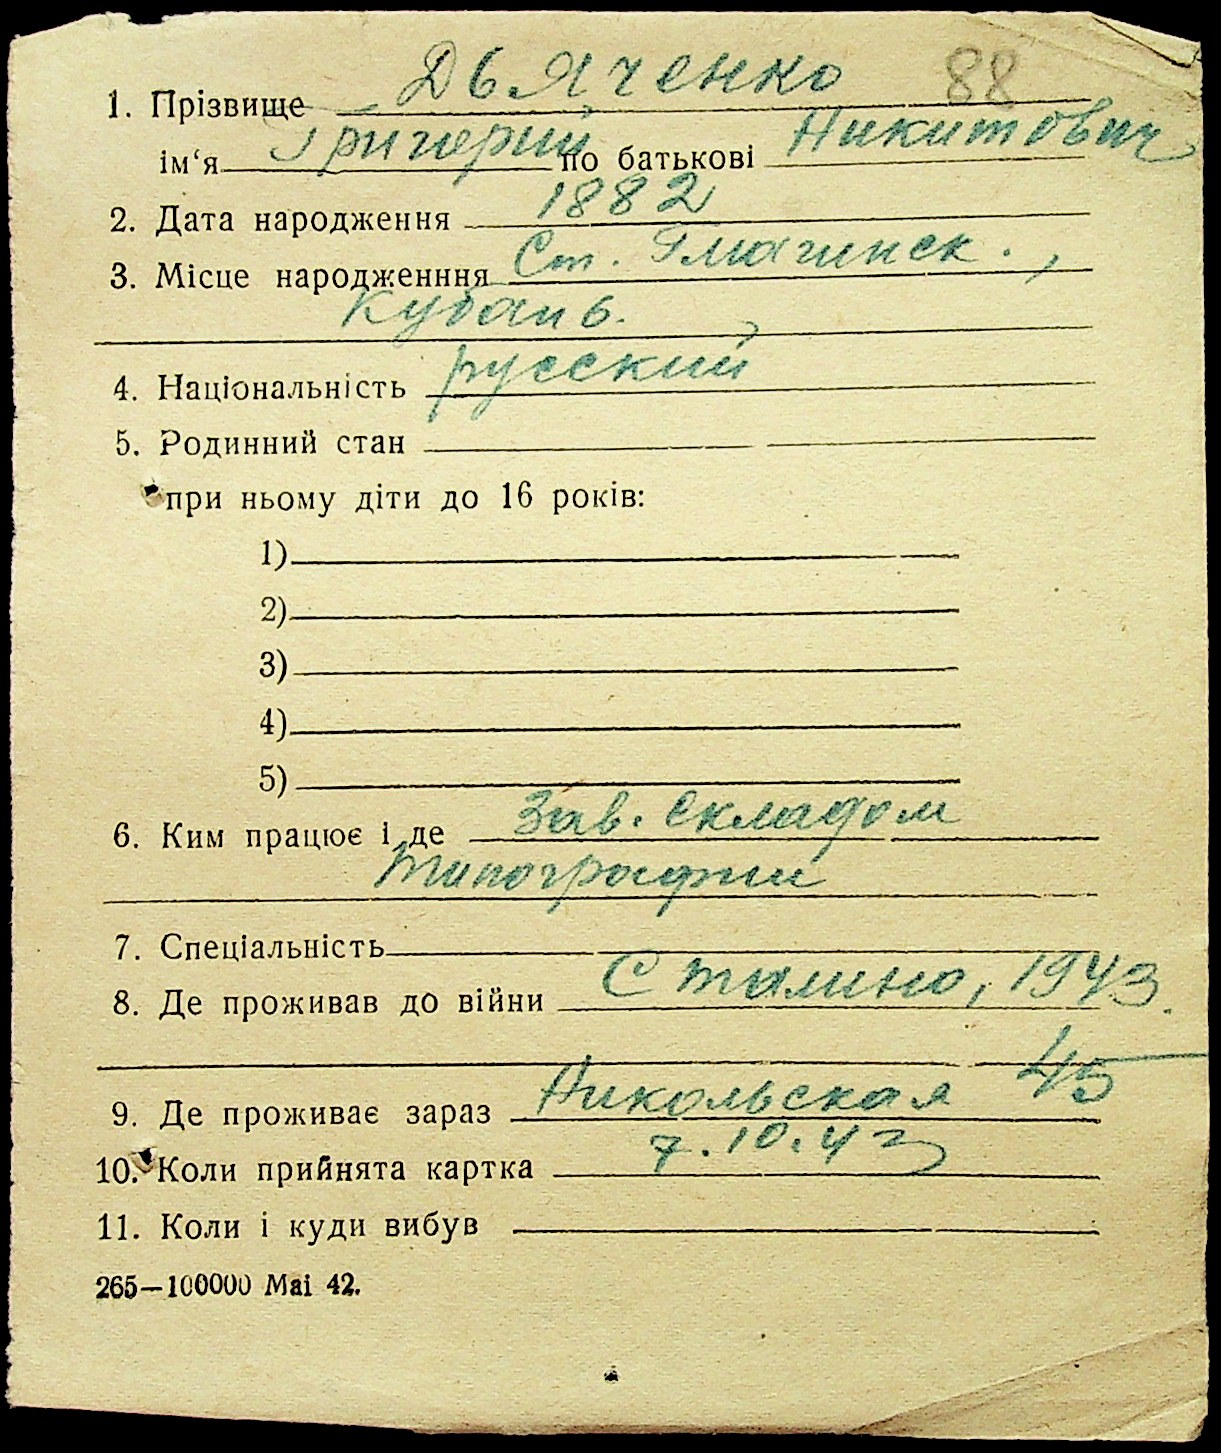 Дьяченко 88
1. Прізвище
Григорий Никитович
ім'я по батькові
2. Дата народження 1882
3. Місце народженння Ст. Гмагинск.,
Кубань.
4. Національність русский
5. Родинний стан
при ньому діти до 16 років:
1)
2)
3)
4)
5)
6. Ким працює і де Зав. складом
типографии
7. Спеціальність
8. Де проживав до війни Сталино, 1943.
9. Де проживає зараз Никольская 45
10. Коли прийнята картка 7.10.42
11. Коли і куди вибув
265—100000 Mai 42.